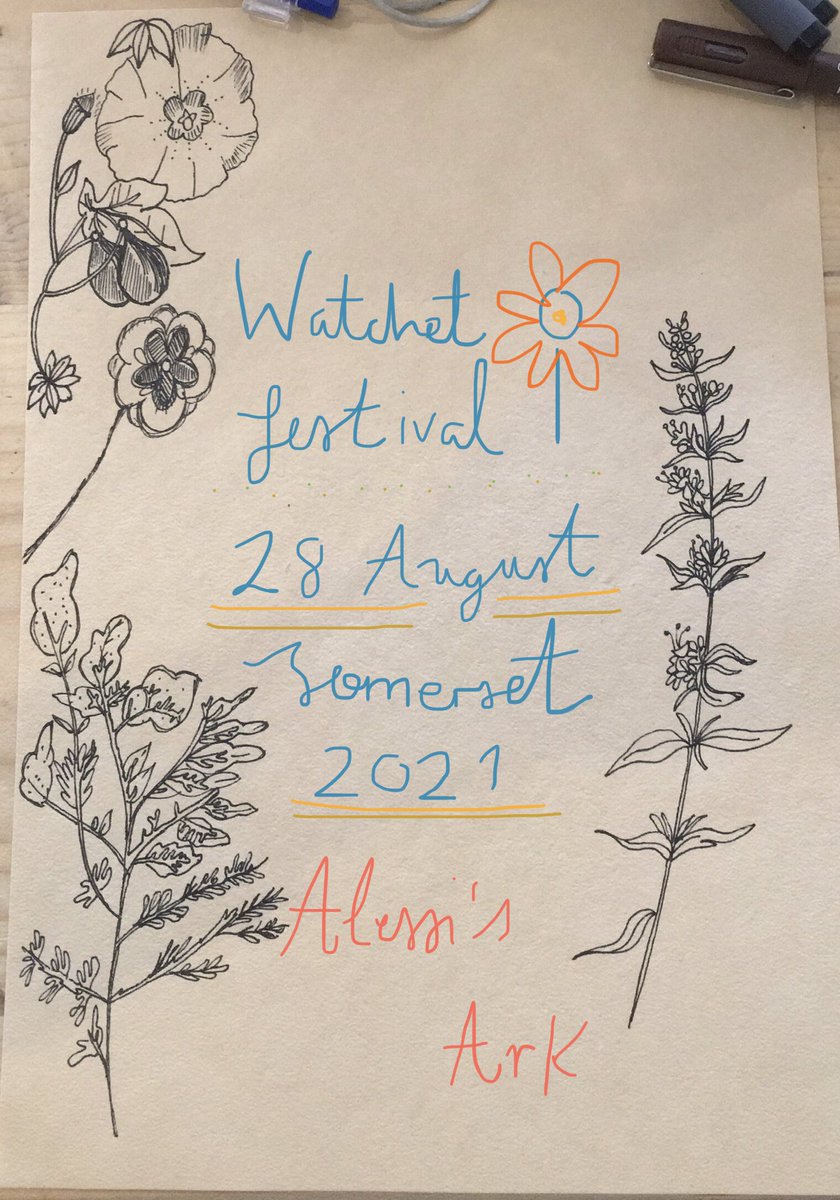 Watchet
festival
28 August
Somerset
2021
Alessi's
Ark